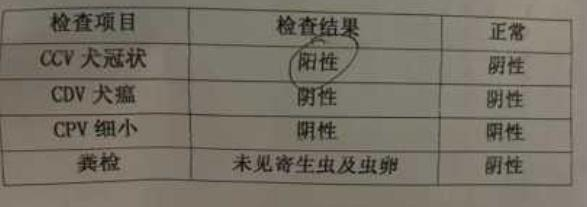 检查项目 检查结果 正常
CCV 犬冠状 阳性 阴性
CDV 犬瘟 阴性 阴性
CPV 细小 阴性 阴性
粪检 未见寄生虫及虫卵 阴性